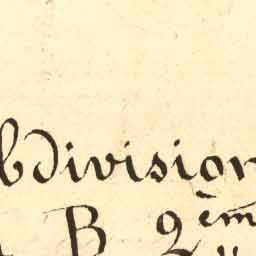 bdivision
B 2ème